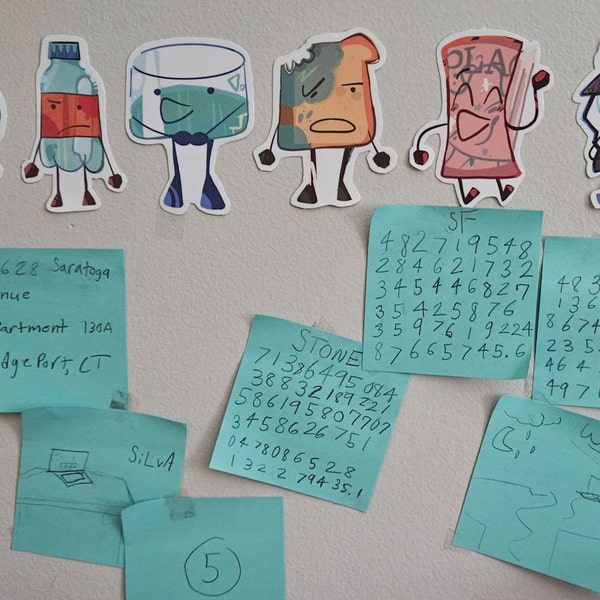 CLAC
628 Saratoga
nue
partment 730A
dgePort, CT
SiLvA
5
STONE
71386495084
38832189221
58619580 7707
3458626751
0478086528
1322 79435.1
SF
482719548
284621732
345446827
35425876
35976 19224
87665745.6
483
136
8674
235
464
497
W